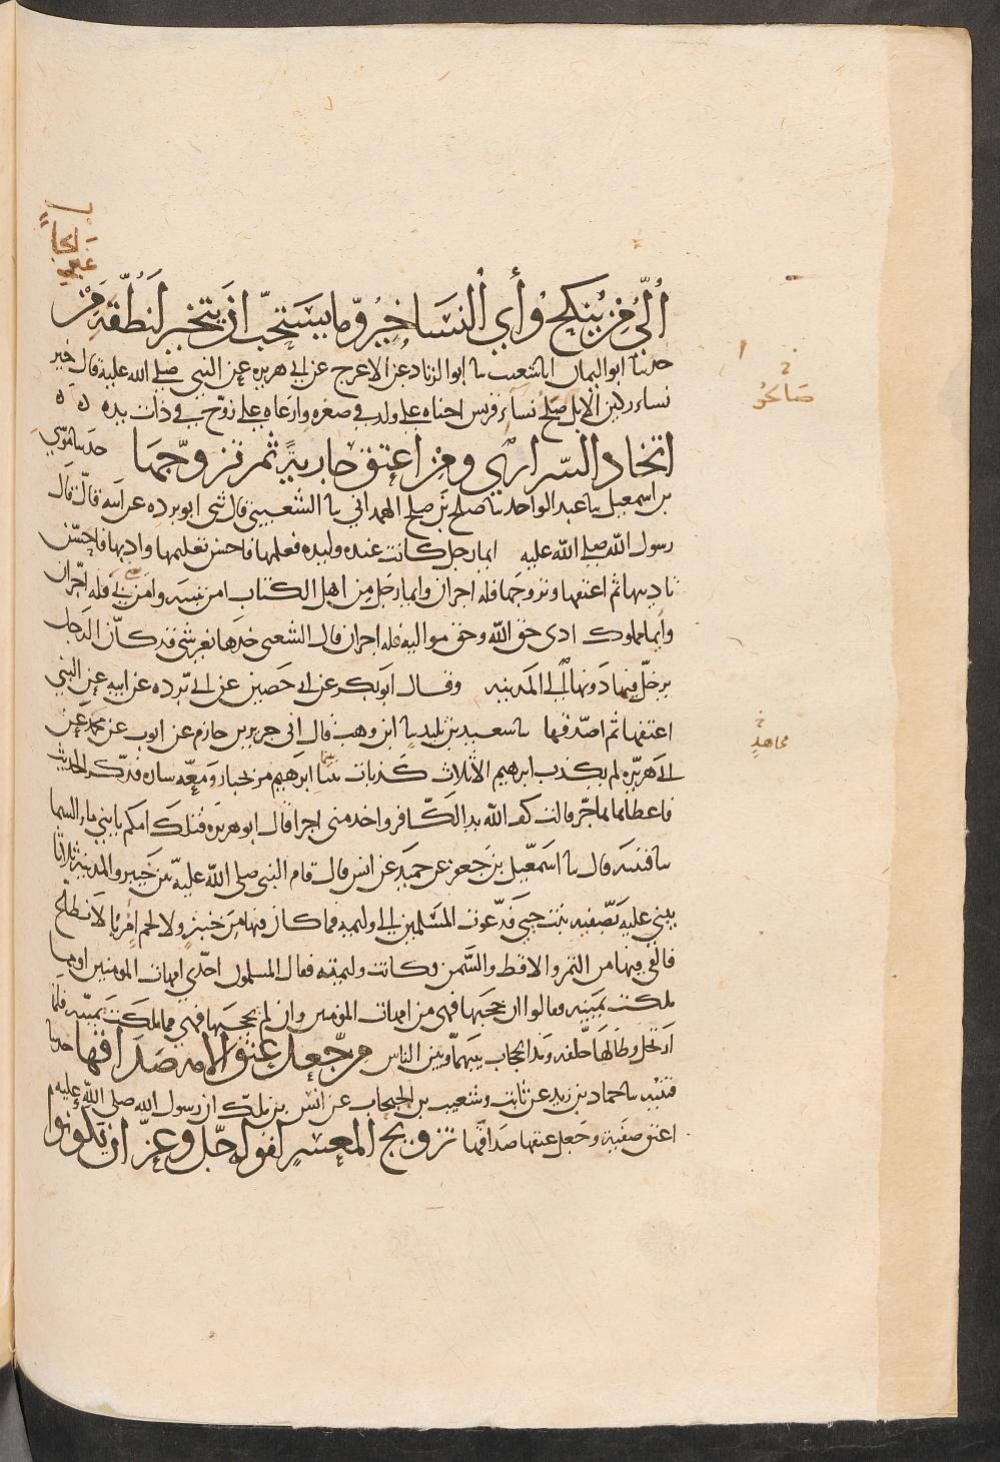 إلى من ينكح وأي النسا خير وما يستحب ان يتخير لنطفه من
غير ايجاب
حدثنا ابو اليمان انا شعيب نا ابو الزناد عن الاعرج عن ابي هريره عن النبي صلى الله عليه قال خير
نساء ركبن الابل صلح نساء قريش احناه على ولد في صغره وارعاه على زوج في ذات يده ه ه
صالحو
اتخاذ السراري ومن اعتق جارية ثم تزوجها حدثنا موسى
بن اسمعيل نا عبد الواحد نا صلح بن صلح الهمداني نا الشعبي قال ثنى ابو برده عن ابيه قال قال
رسول الله صلى الله عليه ايما رجل كانت عنده وليده فعلمها فاحسن تعليمها وادبها فاحسن
تاديبها ثم اعتقها وتزوجها فله اجران وايما رجل من اهل الكتاب امن بنبيه وامن بي فله اجران
وأيما مملوك ادى حق الله وحق مواليه فله اجران قال الشعبي خذها بغير شي قد كان الرجل
يرحل فيما دونها الى المدينه وقال ابو بكر عن ابي حصين عن ابي برده عن ابيه عن النبي
اعتقها ثم اصدقها نا سعيد بن تليد نا ابن وهب قال انى جرير بن حازم عن ايوب عن محمد عن
مجاهد
ابي هريره لم يكذب ابرهيم الا ثلاث كذبات بينا ابرهيم مر بجبار ومعه ساره فذكر الحديث
فاعطاها هاجر قالت كف الله يد الكافر واخدمني اجر قال ابو هريره فتلك امكم يا بني ماء السما
نا قتيبه قال نا اسمعيل بن جعفر عن حميد عن انس قال قام النبي صلى الله عليه بين خيبر والمدينه ثلاثا
يبني عليه بصفيه بنت حيي فدعوت المسلمين الى وليمه فما كان فيها من خبز ولا لحم امرنا بالانطاع
فالقي فيها من التمر والاقط والسمن وكانت وليمته فقال المسلمون احدى امهات المومنين او مما
ملكت يمينه وقالوا ان حجبها فهي من امهات المومنين وان لم يحجبها فهي مما ملكت يمينه فلما
ارتحل وطا لها خلفه ومد الحجاب بينها وبين الناس من جعل عتق الامه صداقها حدثنا
قتيبه نا حماد بن زيد عن ثابت وشعيب بن الحبحاب عن انس بن ملك ان رسول الله صلى الله عليه
اعتق صفية وجعل عتقها صداقها تزويج المعسر لقوله جل وعز ان يكونوا